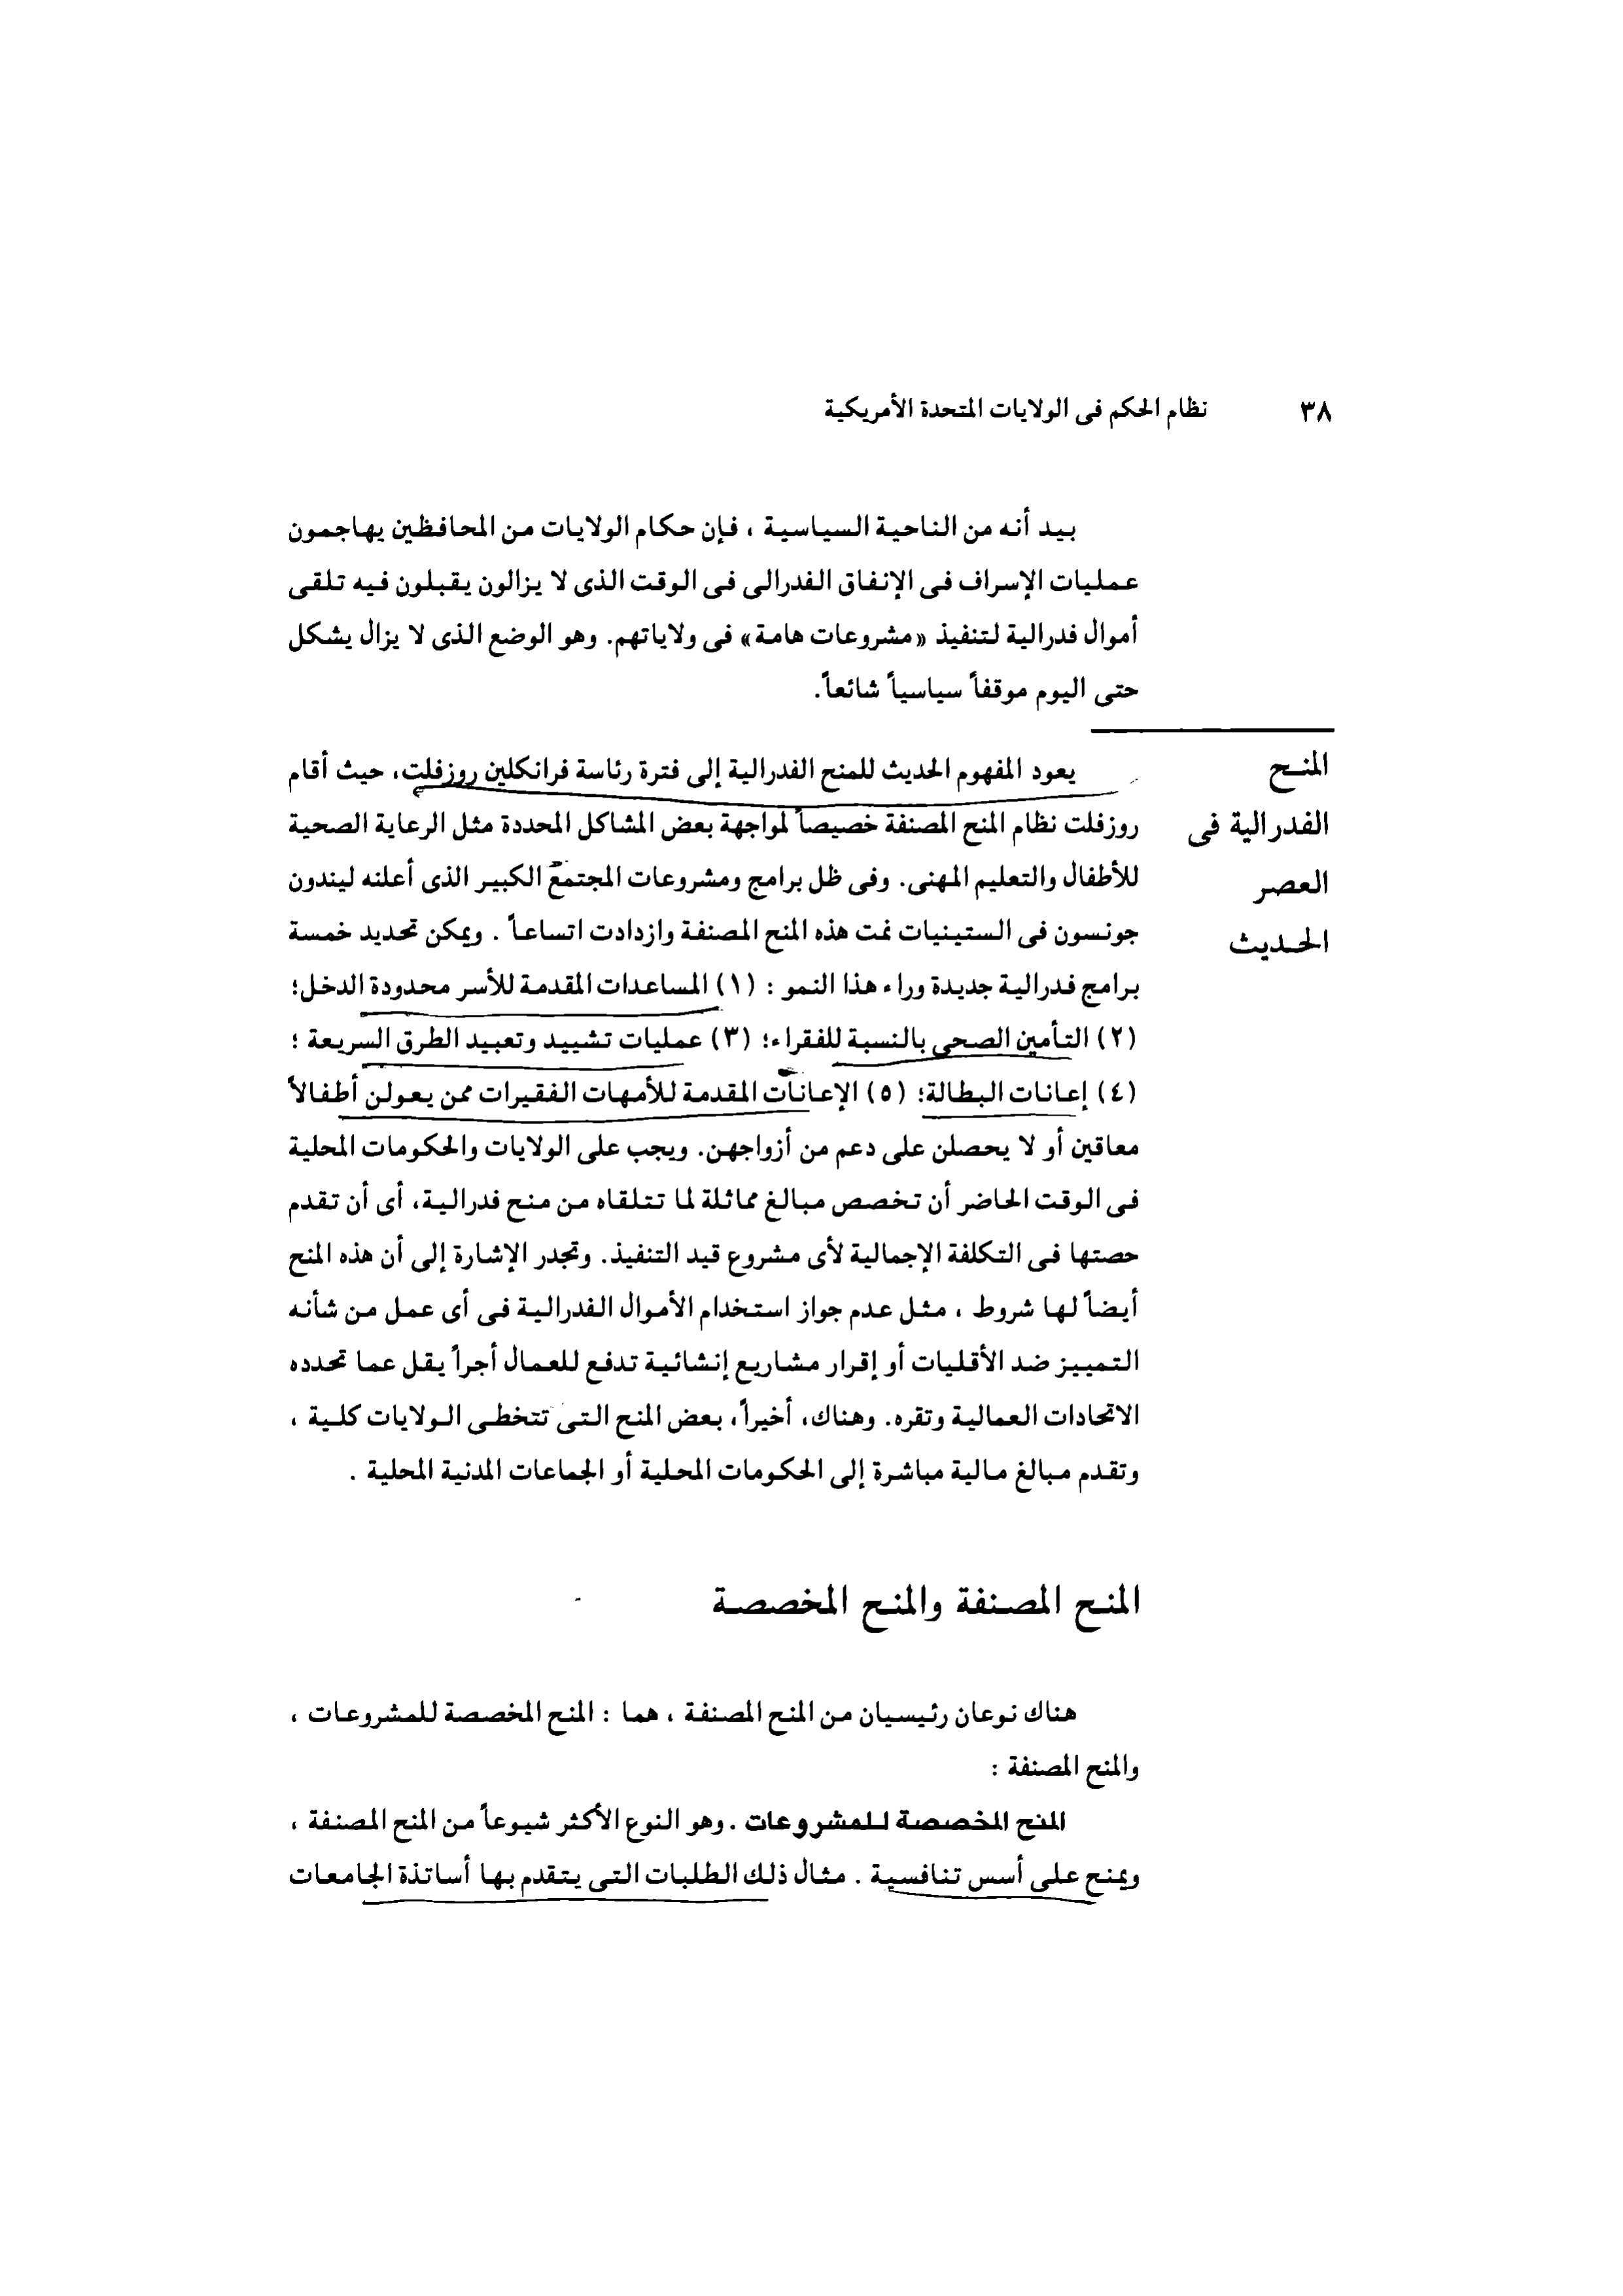 ٣٨ نظام الحكم فى الولايات المتحدة الأمريكية
بيد أنه من الناحية السياسية ، فإن حكام الولايات من المحافظين يهاجمون
عمليات الإسراف فى الإنفاق الفدرالى فى الوقت الذى لا يزالون يقبلون فيه تلقى
أموال فدرالية لتنفيذ «مشروعات هامة» فى ولاياتهم. وهو الوضع الذى لا يزال يشكل
حتى اليوم موقفاً سياسياً شائعاً.
المنح
الفدرالية فى
العصر
الحديث
يعود المفهوم الحديث للمنح الفدرالية إلى فترة رئاسة فرانكلين روزفلت، حيث أقام
روزفلت نظام المنح المصنفة خصيصاً لمواجهة بعض المشاكل المحددة مثل الرعاية الصحية
للأطفال والتعليم المهنى. وفى ظل برامج ومشروعات المجتمع الكبير الذى أعلنه ليندون
جونسون فى الستينيات نمت هذه المنح المصنفة وازدادت اتساعاً . ويمكن تحديد خمسة
برامج فدرالية جديدة وراء هذا النمو : (١) المساعدات المقدمة للأسر محدودة الدخل؛
(٢) التأمين الصحى بالنسبة للفقراء؛ (٣) عمليات تشييد وتعبيد الطرق السريعة ؛
(٤) إعانات البطالة؛ (٥) الإعانات المقدمة للأمهات الفقيرات ممن يعولن أطفالاً
معاقين أو لا يحصلن على دعم من أزواجهن. ويجب على الولايات والحكومات المحلية
فى الوقت الحاضر أن تخصص مبالغ مماثلة لما تتلقاه من منح فدرالية، أى أن تقدم
حصتها فى التكلفة الإجمالية لأى مشروع قيد التنفيذ. وتجدر الإشارة إلى أن هذه المنح
أيضاً لها شروط ، مثل عدم جواز استخدام الأموال الفدرالية فى أى عمل من شأنه
التمييز ضد الأقليات أو إقرار مشاريع إنشائية تدفع للعمال أجراً يقل عما تحدده
الاتحادات العمالية وتقره. وهناك، أخيراً، بعض المنح التى تتخطى الولايات كلية ،
وتقدم مبالغ مالية مباشرة إلى الحكومات المحلية أو الجماعات المدنية المحلية .
المنح المصنفة والمنح المخصصة
هناك نوعان رئيسيان من المنح المصنفة ، هما : المنح المخصصة للمشروعات ،
والمنح المصنفة :
المنح المخصصة للمشروعات . وهو النوع الأكثر شيوعاً من المنح المصنفة ،
ويمنح على أسس تنافسية . مثال ذلك الطلبات التى يتقدم بها أساتذة الجامعات